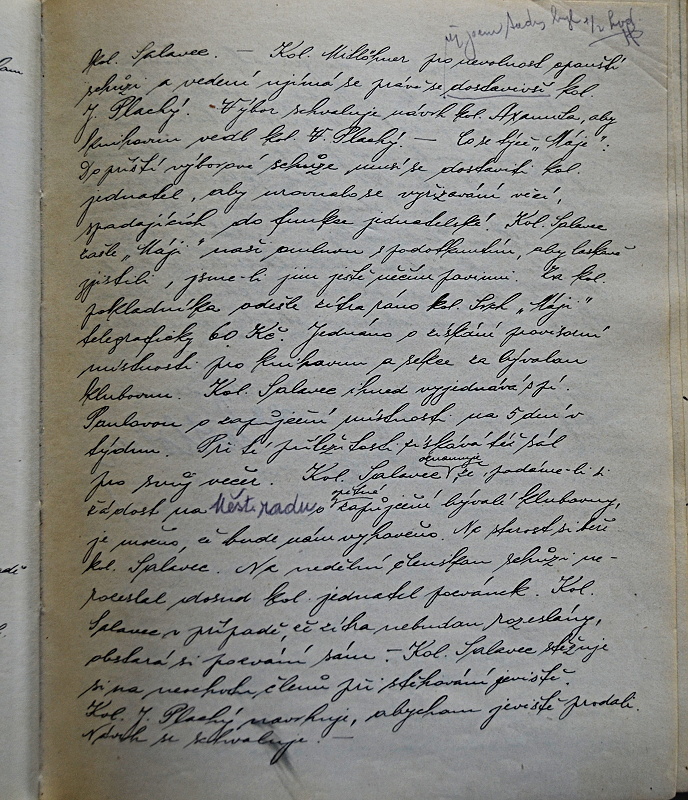 již jsem tady byl
kol. Salavec. — Kol. Mittöhner pro nevolnost opouští
schůzi a vedení ujímá se právě se dostavivší kol.
J. Plachý. Výbor schvaluje návrh kol. Axamita, aby
knihovnu vedl kol. V. Plachý. — Co se týče „Máje":
Do příští výborové schůze, musí se dostaviti kol.
jednatel, aby urovnalo se vyřizování věcí,
spadajících do funkce jednatelské! Kol. Salavec
zašle „Máji" naši omluvu s podotknutím, aby laskavě
zjistili, jsme-li jim ještě něčím povinni. Za kol.
pokladníka odešle zítra ráno kol. „Máji"
telegraficky 60 Kč. Jednáno o získání provisorní
místnosti pro knihovnu a sekce za bývalou
klubovnu. Kol. Salavec ihned vyjednává s pí.
Paulovou o zapůjčení místnosti na 5 dní v
týdnu. Při té příležitosti získává též sál
pro svůj večer. Kol. Salavec oznamuje, že podáme-li si
žádost na Měst. radu o zpětné zapůjčení bývalé klubovny,
je možno, že bude nám vyhověno. Na starost si béře
kol. Salavec. Na nedělní členskou schůzi ne-
rozeslal dosud kol. jednatel pozvánek. Kol.
Salavec v případě, že zítra nebudou rozeslány,
obstará si pozvání sám. — Kol. Salavec stěžuje
si na neochotu členů při stěhování jeviště.
Kol. J. Plachý navrhuje, abychom jeviště prodali.
Návrh se schvaluje. —